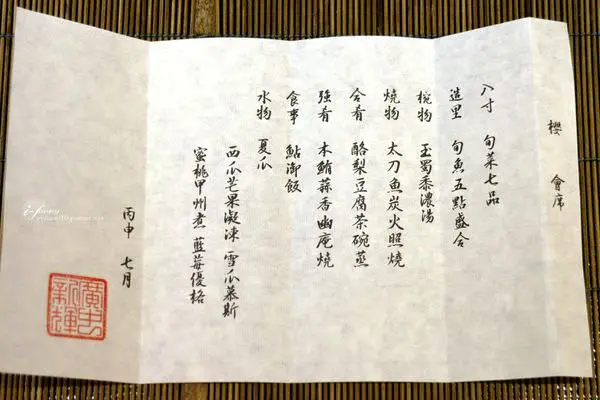 櫻 會席
八寸 旬菜七品
造里 旬魚五點盛合
椀物 玉蜀黍濃湯
燒物 太刀魚炭火照燒
合肴 酪梨豆腐茶碗蒸
強肴 本鮪蒜香幽庵燒
食事 鮎御飯
水物 夏瓜
西瓜芒果凝凍 雪瓜慕斯
蜜桃甲州煮 藍莓優格
丙申 七月